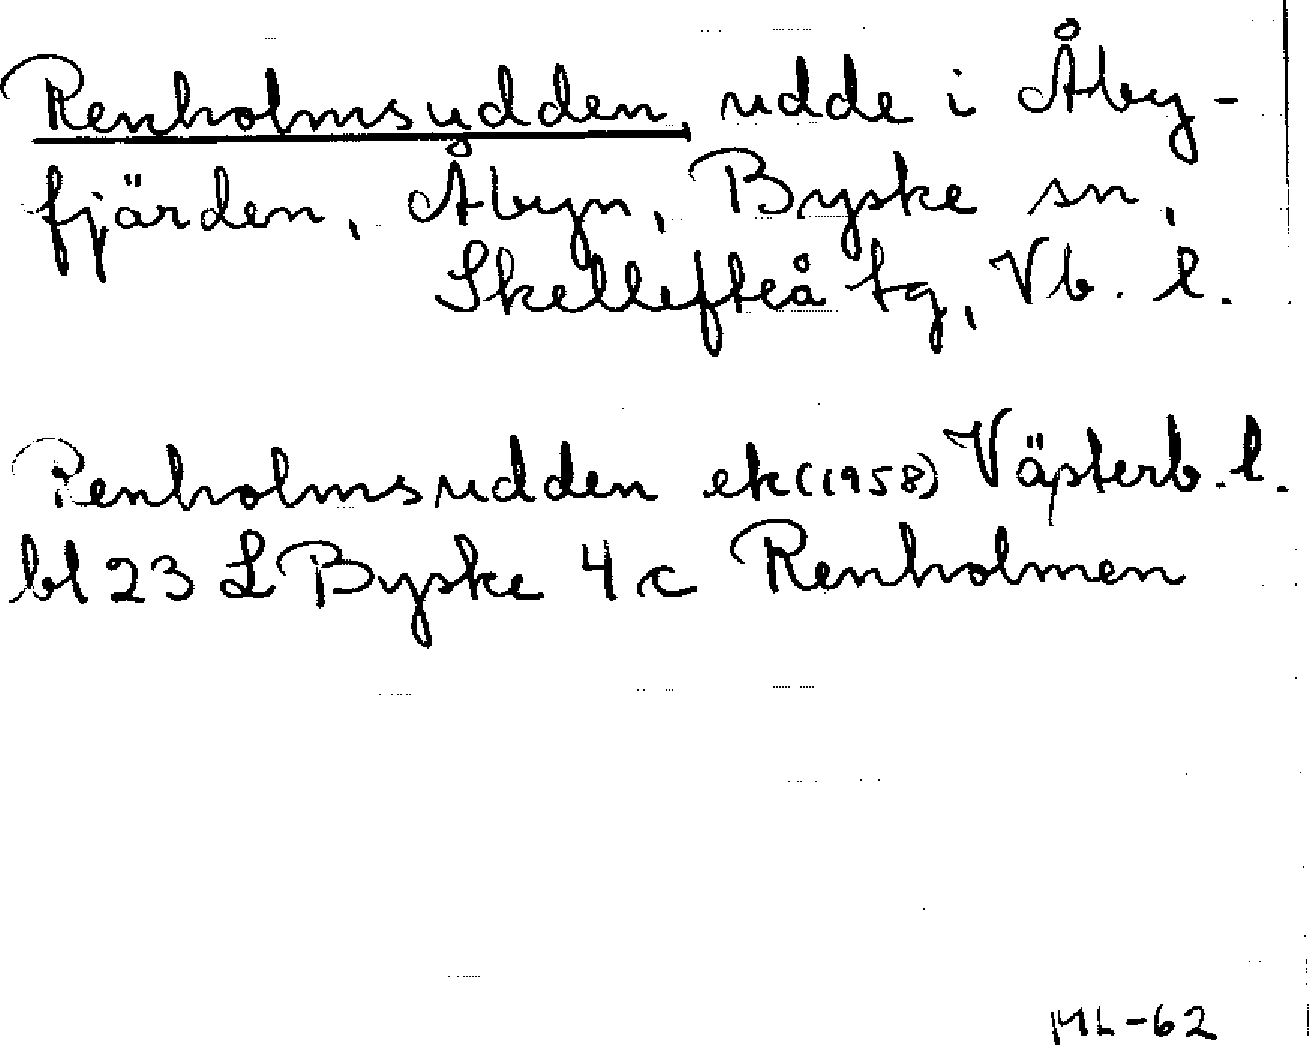 Renholmsudden, udde i Åby-
fjärden, Åbyn, Byske sn,
Skellefteå tg, Vb. l.
Renholmsudden ek (1958) Västerb. l.
bl 23 L Byske 4 c Renholmen
ML-62